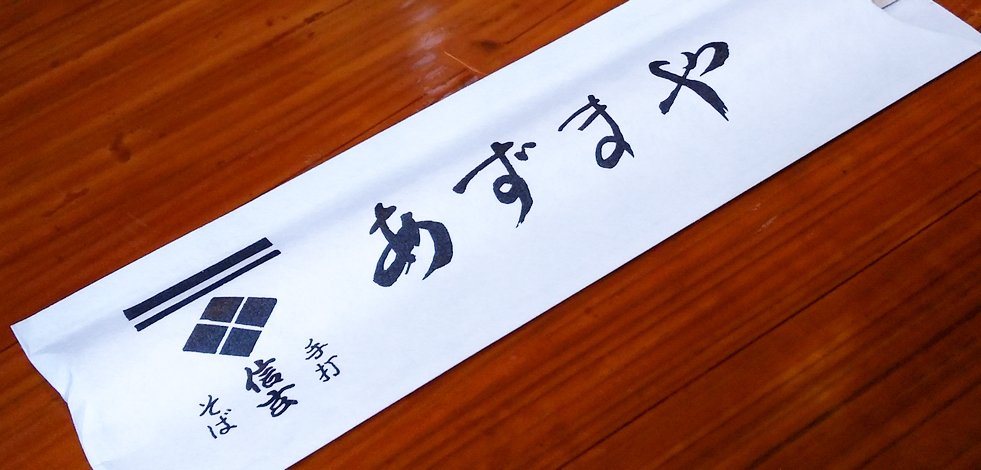 手打
信玄
そば
あずまや